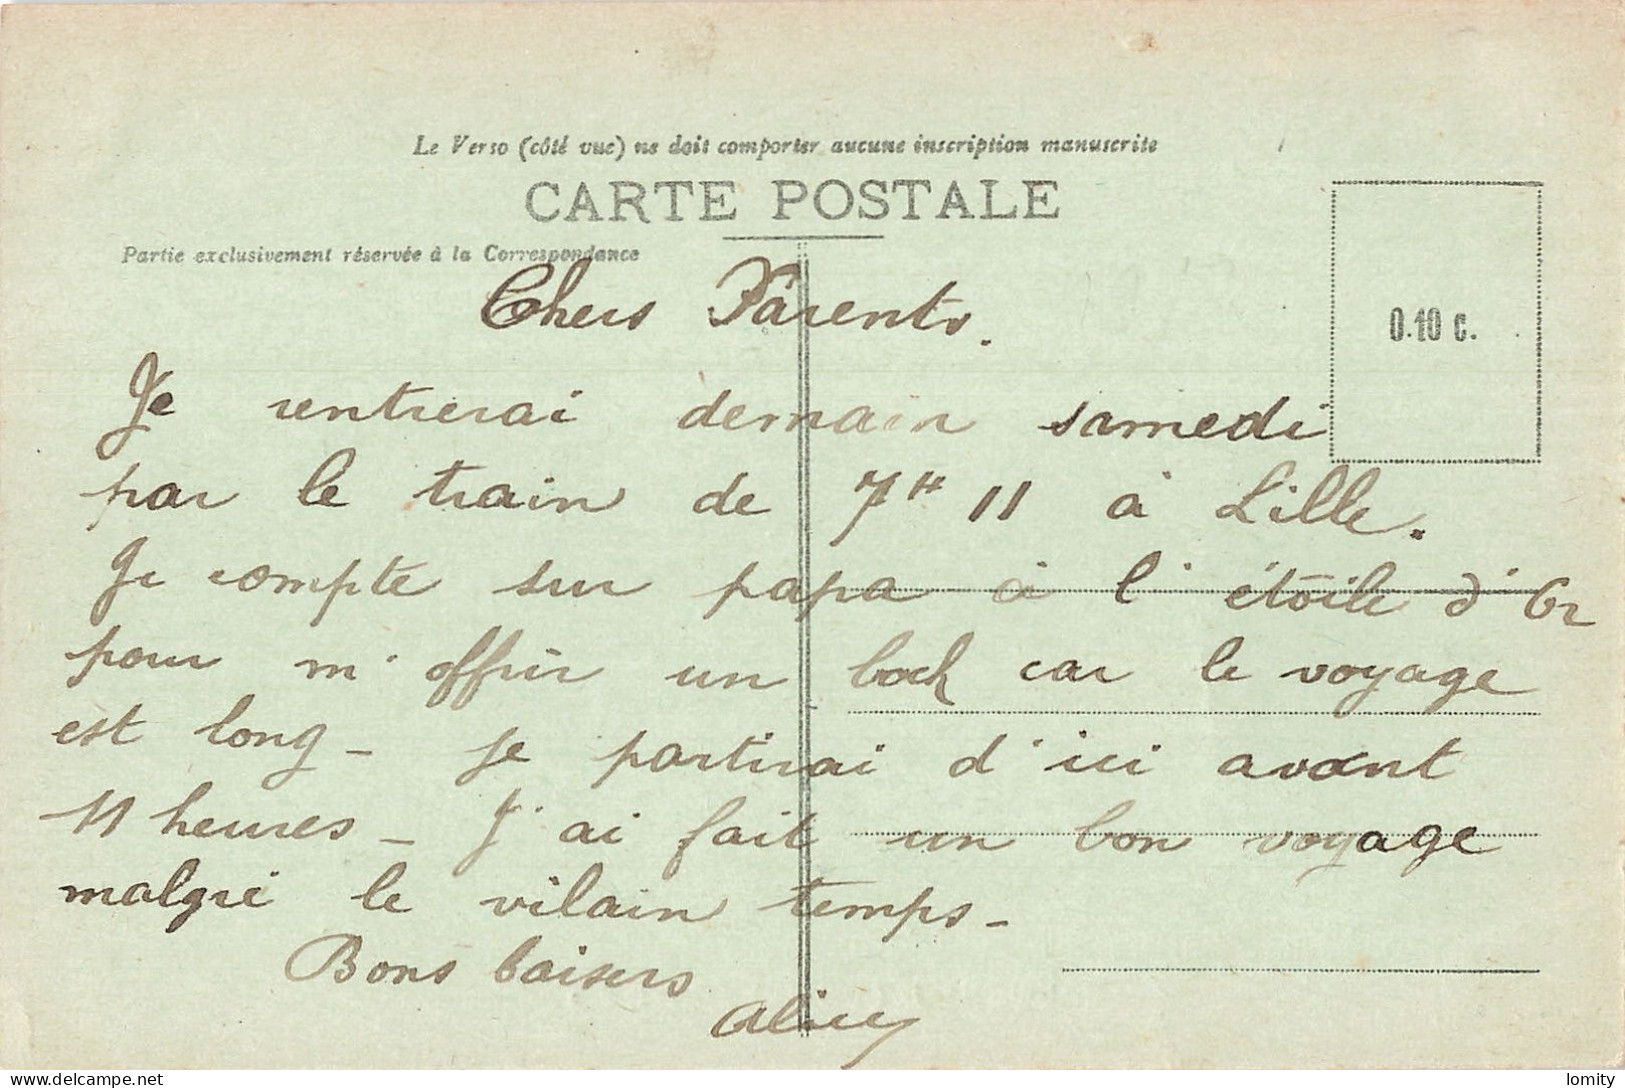 Le Verso (côté vue) ne doit comporter aucune inscription manuscrite
CARTE POSTALE
Partie exclusivement réservée à la Correspondance
0.10 c.
Chers Parents.
Je rentrerai demain samedi
par le train de 7H 11 à Lille.
Je compte sur papa à l'étoile d'Or
pour m'offrir un boch car le voyage
est long - je partirai d'ici avant
11 heures - J'ai fait un bon voyage
malgré le vilain temps -
Bons baisers
delcampe.net
lomity